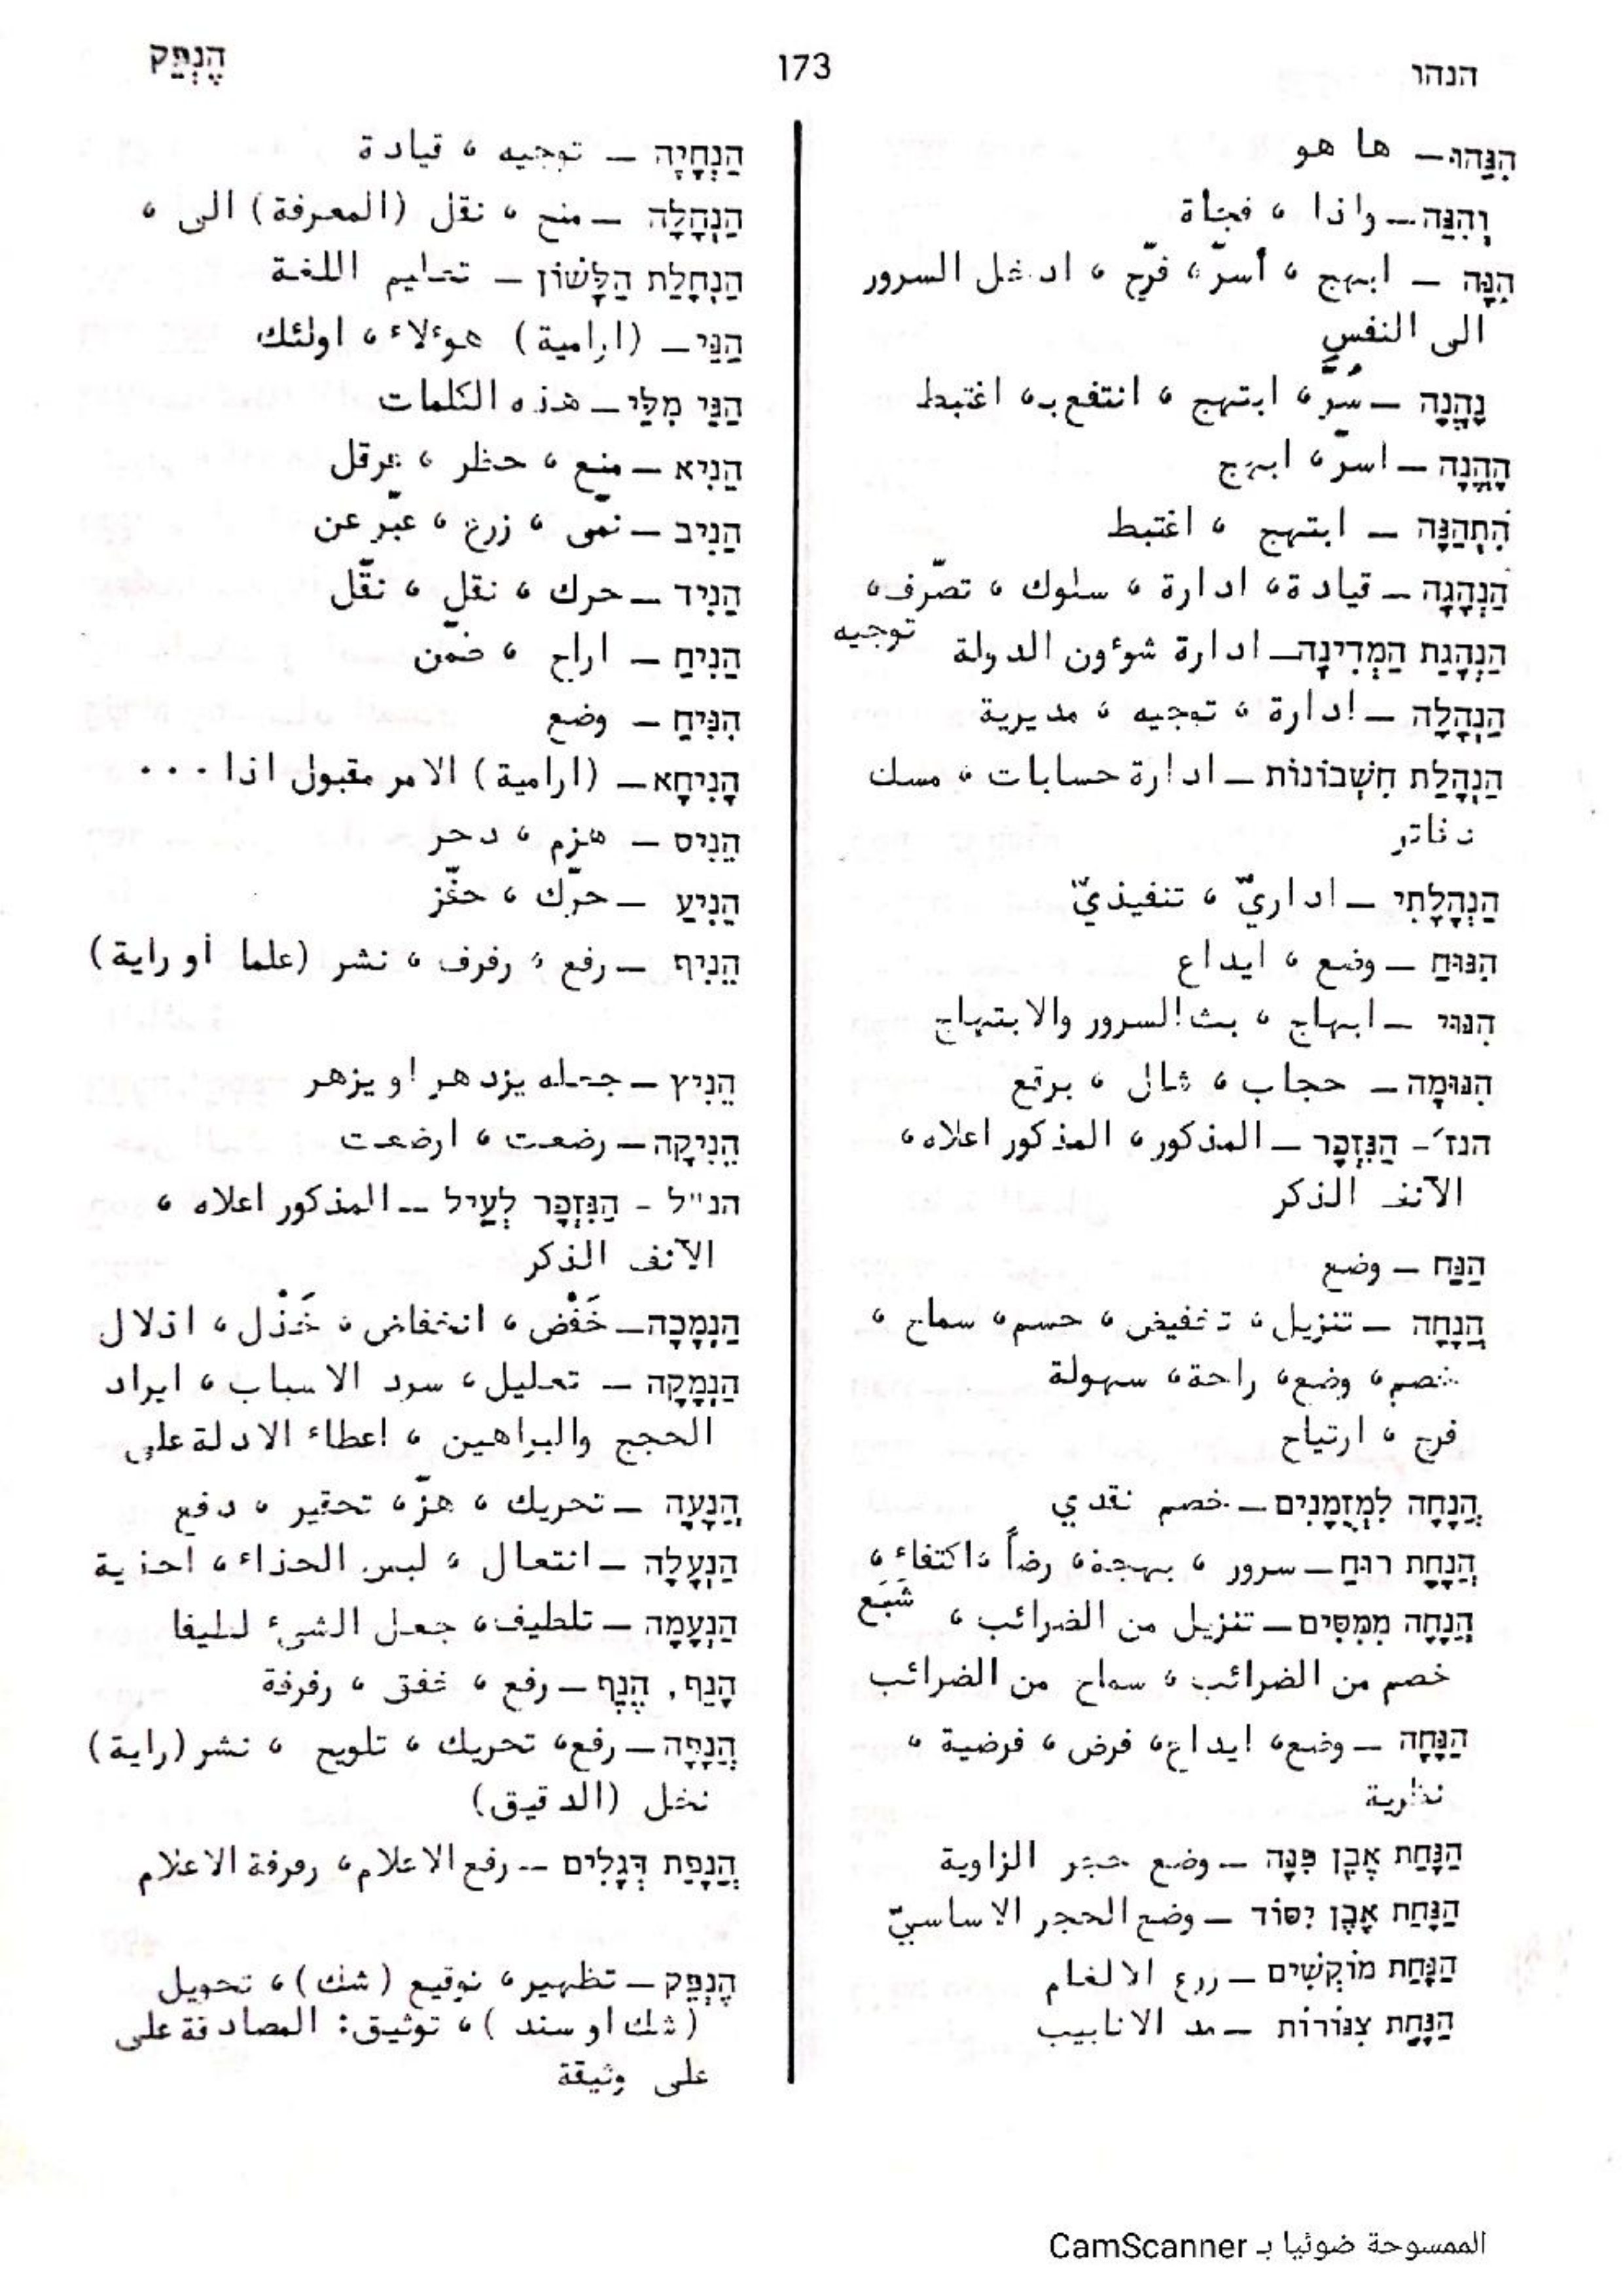 הנהו
173
הֶנְפֵּק
הִנֵּהוּ – ها هو
וְהִנֵּה – واذا ، فجأة
הִנָּה – ابهج ، أسرّ ، فرّح ، ادخل السرور
الى النفس
נֶהֱנָה – سُرَّ ، ابتهج ، انتفع بـ ، اغتبط
הֶהֱנָה – اسرّ ، ابهج
הִתְהַנָּה – ابتهج ، اغتبط
הַנְהָגָה – قيادة ، ادارة ، سلوك ، تصّرف ،
توجيه
הַנְהָגַת הַמְּדִינָה – ادارة شوءون الدولة
הַנְהָלָה – ادارة ، توجيه ، مديرية
הַנְהָלַת חֶשְׁבּוֹנוֹת – ادارة حسابات ، مسك
دفاتر
הַנְהָלָתִי – اداريّ ، تنفيذيّ
הִנּוּחַ – وضع ، ايداع
הִנּוּי – ابهاج ، بث السرور والابتهاج
הִנּוּמָה – حجاب ، شال ، برقع
הנז׳ - הַנִּזְכָּר – المذكور ، المذكور اعلاه ،
الآنف الذكر
הַנַּח – وضع
הֲנָחָה – تنزيل ، تخفيض ، حسم ، سماح ،
خصم ، وضع ، راحة ، سهولة
فرج ، ارتياح
הֲנָחָה לִמְזֻמָּנִים – خصم نقدي
הֲנָחַת רוּחַ – سرور ، بهجة ، رضاً ، اكتفاء ،
شَبَع
הֲנָחָה מִמִּסִּים – تنزيل من الضرائب ،
خصم من الضرائب ، سماح من الضرائب
הַנָּחָה – وضع ، ايداع ، فرض ، فرضية ،
نظرية
הַנָּחַת אֶבֶן פִּנָּה – وضع حجر الزاوية
הַנָּחַת אֶבֶן יְסוֹד – وضع الحجر الاساسيّ
הַנָּחַת מוֹקְשִׁים – زرع الالغام
הַנָּחַת צִנּוֹרוֹת – مد الانابيب
הַנְחָיָה – توجيه ، قيادة
הַנְחָלָה – منح ، نقل (المعرفة) الى ،
הַנְחָלַת הַלָּשׁוֹן – تعليم اللغة
הַנֵּי – (ارامية) هوءلاء ، اولئك
הַנֵּי מִלֵּי – هذه الكلمات
הֵנִיא – منع ، حظر ، عرقل
הֵנִיב – نمّى ، زرع ، عبّر عن
הֵנִיד – حرك ، نقل ، نقّل
הֵנִיחַ – اراح ، ضمّن
הִנִּיחַ – وضع
הָנִיחָא – (ارامية) الامر مقبول اذا . . .
הֵנִיס – هزم ، دحر
הֵנִיעַ – حرّك ، حفّز
הֵנִיף – رفع ، رفرف ، نشر (علما أو راية)
הֵנִיץ – جعله يزدهر او يزهر
הֵנִיקָה – رضعت ، ارضعت
הנ״ל - הַנִּזְכָּר לְעֵיל – المذكور اعلاه ،
الآنف الذكر
הַנְמָכָה – خَفْض ، انخفاض ، خَذْل ، اذلال
הַנְמָקָה – تعليل ، سرد الاسباب ، ايراد
الحجج والبراهين ، اعطاء الادلة على
הֲנָעָה – تحريك ، هزّ ، تحقير ، دفع
הַנְעָלָה – انتعال ، لبس الحذاء ، احذية
הַנְעָמָה – تلطيف ، جعل الشيء لطيفا
הָנֵף, הֶנֶף – رفع ، خفق ، رفرفة
הֲנָפָה – رفع ، تحريك ، تلويح ، نشر (راية)
نخل (الدقيق)
הֲנָפַת דְּגָלִים – رفع الاعلام ، رفرفة الاعلام
הֶנְפֵּק – تظهير ، توقيع (شك) ، تحويل
(شك او سند) ، توثيق: المصادقة على
على وثيقة
الممسوحة ضوئيا بـ CamScanner